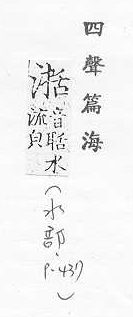 四聲篇海
音聒水
流皃
(水部. P.437)